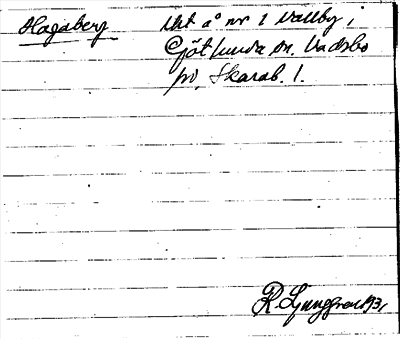 Hagaberg Uht å nr 2 Vallby i
Götlunda sn. Vadsbo
hd, Skarab. l.
R. Ljunggren 1931